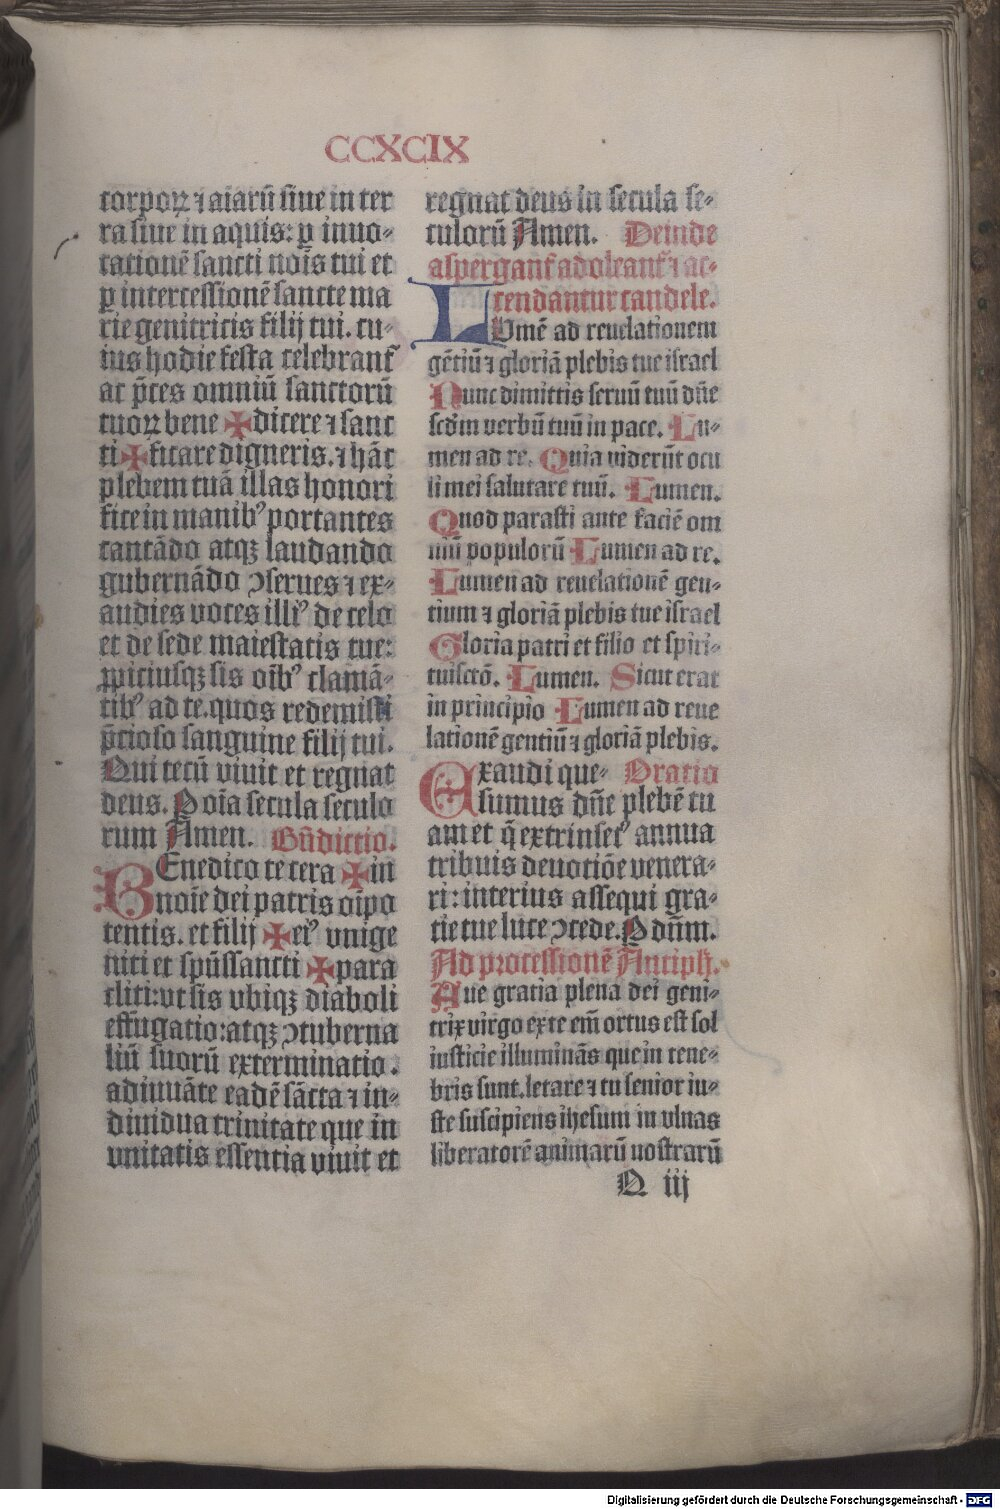 CCXCIX
corpoꝝ ⁊ aīarū siue in ter
ra siue in aquis: ꝑ inuo-
cationē sancti noīs tui et
ꝑ intercessionē sancte ma
rie genitricis filij tui. cu-
ius hodie festa celebrant᷑
ac p̄ces omniū sanctorū
tuoꝝ bene ✠ dicere ⁊ sanc
ti ✠ ficare digneris. ⁊ hāc
plebem tuā illas honori
fice in manibꝰ portantes
cantādo atqꝫ laudando
gubernādo ꝯserues ⁊ ex-
audies voces illiꝰ de celo
et de sede maiestatis tue:
ꝓpiciusqꝫ sis oībꝰ clamā-
tibꝰ ad te. quos redemisti
p̄cioso sanguine filij tui.
Qui tecū viuit et regnat
deus. P oīa secula seculo
rum Amen. Bn̄dictio.
BEnedico te cera ✠ in
noīe dei patris oīpo
tentis. et filij ✠ eiꝰ vnige
niti et sp̄ussancti ✠ para
cliti: vt sis vbiqꝫ diaboli
effugatio: atqꝫ ꝯtuberna
liū suorū exterminatio.
adiuuāte eadē sācta ⁊ in-
diuidua trinitate que in
vnitatis essentia viuit et
regnat deus in secula se-
culorū Amen. Deinde
aspergant᷑ adoleant᷑ ⁊ ac-
cendantur candele.
LVmē ad reuelationem
gētiū ⁊ gloriā plebis tue israel
Nunc dimittis seruū tuū dn̄e
scd̄m verbū tuū in pace. Lu-
men ad re. Quia viderūt ocu
li mei salutare tuū. Lumen.
Quod parasti ante faciē om
niū populorū Lumen ad re.
Lumen ad reuelationē gen-
tium ⁊ gloriā plebis tue israel
Gloria patri et filio et spiri-
tuisctō. Lumen. Sicut erat
in principio Lumen ad reue
lationē gentiū ⁊ gloriā plebis.
Exaudi que- Oratio
sumus dn̄e plebē tu
am et q̄ extrinsecꝰ annua
tribuis deuotiōe venera-
ri: interius assequi gra-
tie tue luce ꝯcede. P dn̄m.
Ad processionē Antiph.
Aue gratia plena dei geni-
trix virgo ex te em̄ ortus est sol
iusticie illuminās que in tene-
bris sunt. letare ⁊ tu senior iu-
ste suscipiens ihesum in vlnas
liberatorē animarū nostrarū
Q iij
Digitalisierung gefördert durch die Deutsche Forschungsgemeinschaft - DFG